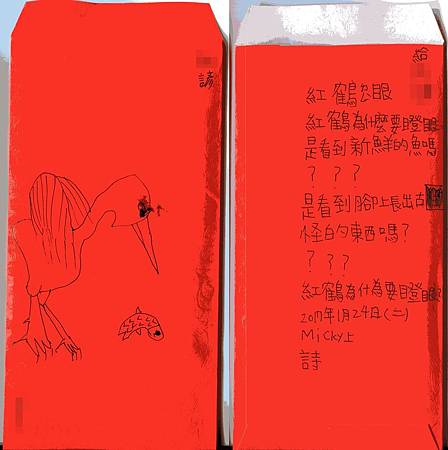 諺
給
紅鶴 眼
紅鶴為什麼要瞪眼
是看到新鮮的魚嗎
? ? ?
是看到腳上長出古
怪的東西嗎?
? ? ?
紅鶴為什為要瞪眼?
2017年1月24日(二)
Micky上
詩